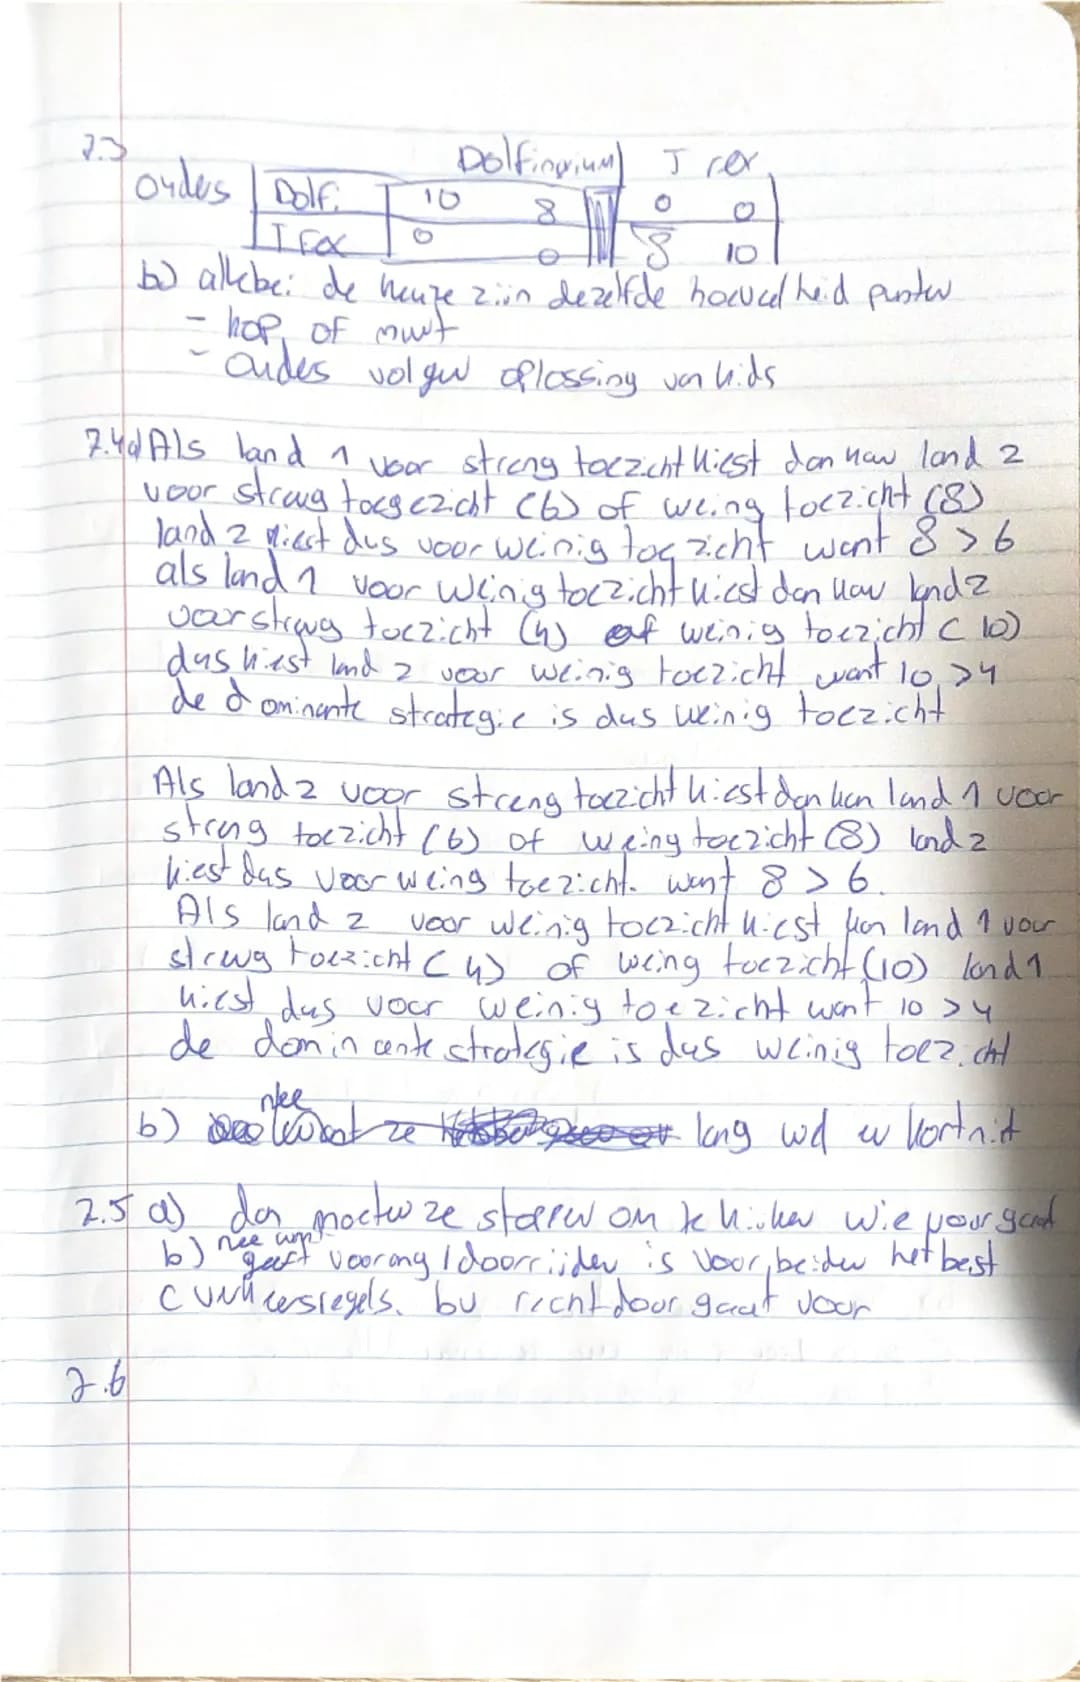 2.3
Dolfinarium T rex
Ouders Dolf. 10 8 0 0
T rex 0 0 8 10
b) allebei de keuze zijn dezelfde hoeveelheid punten
- kop of munt
- Ouders volgen oplossing van kids
2.4a Als land 1 voor streng toezicht kiest dan kan land 2
voor streng toegezicht (6) of weing toezicht (8)
land 2 kiest dus voor weinig toezicht want 8 > 6
als land 1 voor weinig toezicht kiest dan kan land 2
voor streng toezicht (4) of weinig toezicht (10)
dus kiest land 2 voor weinig toezicht want 10 > 4
de dominante strategie is dus weinig toezicht
Als land 2 voor streng toezicht kiest dan kan land 1 voor
streng toezicht (6) of weing toezicht (8) land 2
kiest dus voor weing toezicht. want 8 > 6.
Als land 2 voor weinig toezicht kiest kan land 1 voor
streng toezicht (4) of weing toezicht (10) land 1
kiest dus voor weinig toezicht want 10 > 4
de dominante strategie is dus weinig toezicht
nee
b) want ze lang wel en kort nit
2.5 a) dan moeten ze stoppen om te kijken wie voor gaat
b) nee want
geeft voorang / doorrijden is voor beiden het best
c verkeersregels. bv rechtdoor gaat voor
2.6